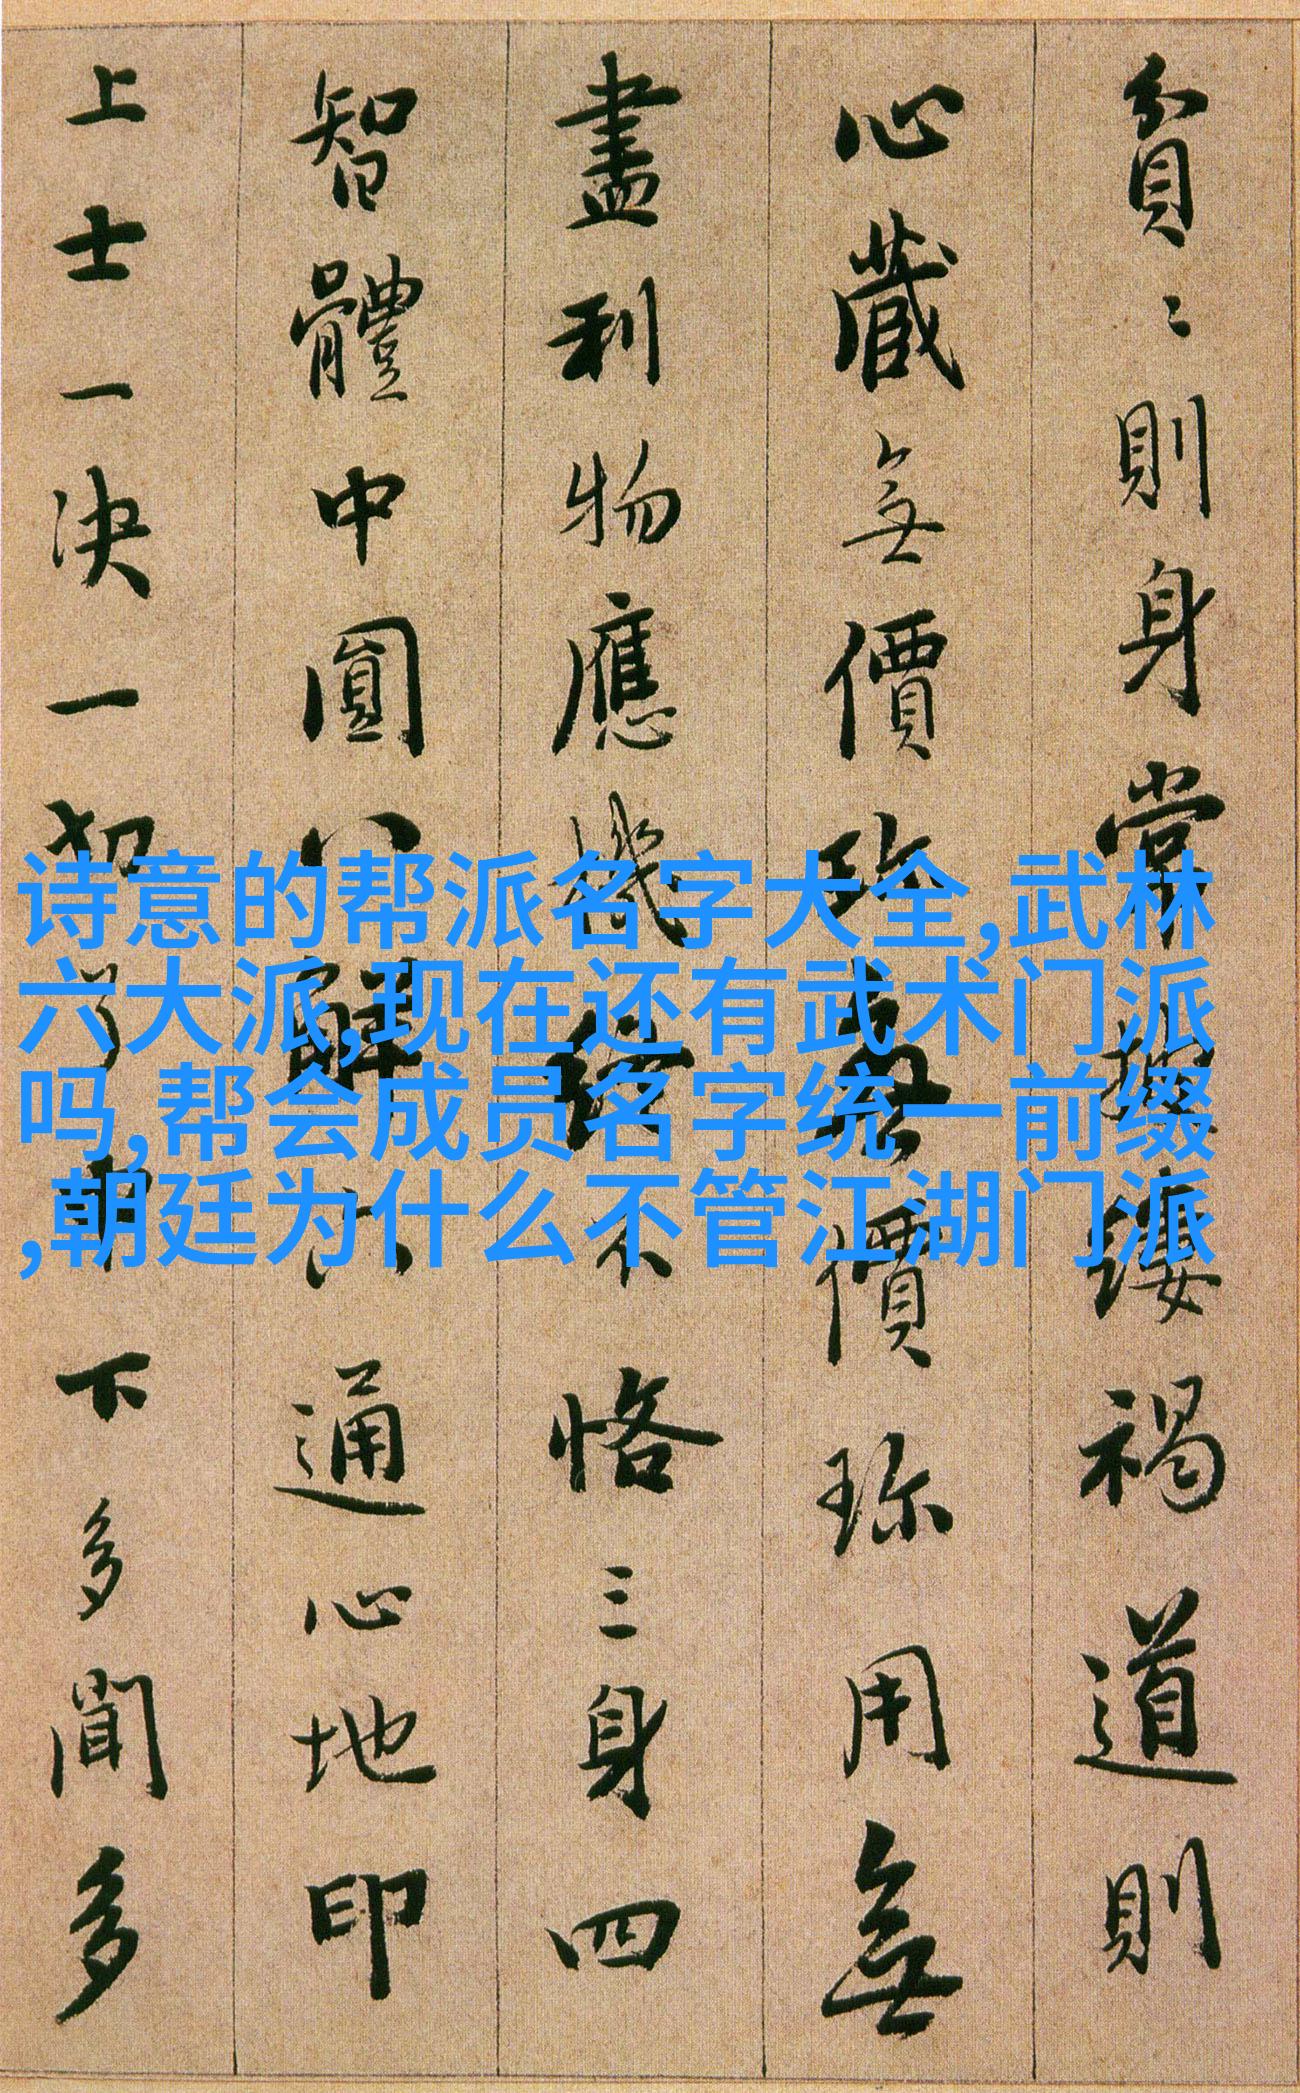 貧〻則身常披縷褐道則
心藏無價珍無價珍用無
盡利物應機終不恪三身四
智體中圓八解六通心地印
上士一决一切了中下多聞多
诗意的帮派名字大全,武林
六大派,现在还有武术门派
吗,帮会成员名字统一前缀
,朝廷为什么不管江湖门派